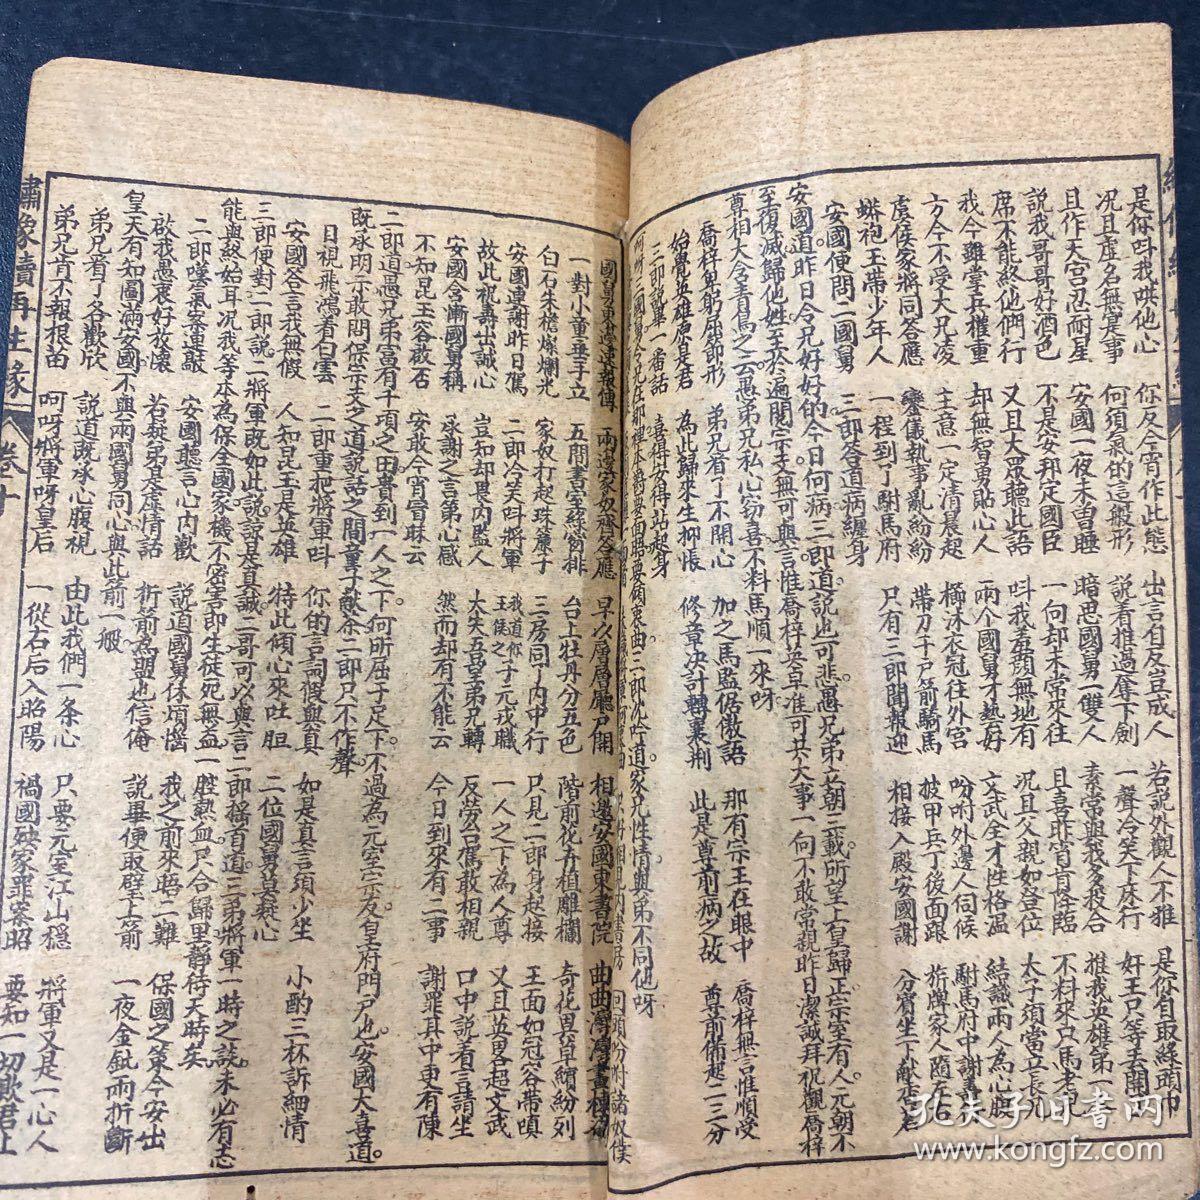 是你叫我哄他心 你反今宵作此態 出言自反豈成人 若說外觀人不雅 是你自取綠頭巾
况且虛名無是事 何須氣的這般形 說着推過奪下劍 一聲冷笑下床行 奸王只等去開口
且作天宫忍耐星 安國一夜未曾睡 暗思國舅一雙人 素常與我多投合 推我英雄第一人
說我哥哥好酒色 不是安邦定國臣 一向却未常來往 且喜昨宵肯降臨 不料來只馬老兄
席不能終他們行 又且大眾聽此語 叫我羞顏無地有 况且父親如登位 太子須當立長分
我今雖掌兵權重 却無智勇貼心人 兩个國舅才藝好 文武全才性格温 結識兩人為心腹
方今不受大兄凌 主意一定清晨起 櫛沐衣冠往外宫 吩咐外邊人伺候 駙馬府中謝義
虞侯家將同答應 鑾儀執事亂紛紛 帶刀千户箭騎馬 披甲兵丁後面跟 旂牌家人隨在后
蟒袍玉帶少年人 一程到了駙馬府 只有三郎聞報迎 相接入殿安國謝 分賓坐下献茶君
安國便問二國舅 三郎答道病纏身
安國道昨日令兄好好的今日何病三郎道說也可悲愚兄弟立朝二載所望上皇歸正宗室有人元朝不
至復滅歸他姓王於遍閱宗支無可與言惟喬梓英卓准可共大事一向不敢常親昨日潔誠拜祝觀喬梓
尊相大合吾意之云愚弟兄私心窃喜不料馬順一來呀
喬梓卑躬屈節形 弟兄看了不開心 加之馬監倨傲語 那有宗王在眼中 喬梓無言惟順受
始覺英雄原是君 為此歸來生抑悵 修章决計轉襄荆 此是尊前病之故 尊前備起二三分
三郎說畢一番話 喜得安得站起身
國舅東學速報傳 兩邊家奴齊答應 早以層層廳户開 相邀安國東書院 曲曲灣灣畫棟
一對小童垂手立 五間書室綠窗排 台上牡丹分五色 階前花卉植雕欄 奇花異草繽紛列
白石朱檐燦爛光 家奴打起珠簾子 三房同了内中行 只見二郎身起接 王面如冠容帶嗔
安國連謝昨日駕 二郎冷笑叫將軍 我道你王侯之子元戎職 一人之下為人尊 又且英畧超文武
故此祝壽出誠心 豈知却畏内監人 大失吾望弟兄轉 反勞台駕敢相親 口中說着言請坐
安國含漸國舅稱 承謝之言弟心感 然而却有不能云 今日到來有二事 謝罪其中更有陳
不知昆玉容敢否 安敢今宵冒昧云
二郎道愚兄弟富有千頃之田貴到一人之下何所屈于足下不過為元室宗友皇府門户也安國大喜道
既承明示敢問保宗支之道說話之間童子献茶二郎只不作聲
目視飛鴻看白雲 二郎重把將軍叫 你的言詞假與真 如是真言須少坐 小酌三杯訴細情
安國答言我無假 人知昆玉是英雄 特此傾心來吐胆 二位國舅莫疑心
三郎便對二郎說二將軍既如此說諒是真誠二哥可以與言二郎稱首道三弟將軍一時之談未必有志
能與熬始耳况我等本為保全國家機不密害即生徒死無益一腔熱血只合歸里靜待天時矣
二郎嘆氣寮連敲 安國聽言心内歡 說道國舅休煩惱 我之前來晤二難 保國之策今安出
啟我愚衷好放懷 若疑弟是虛情話 折箭為盟也信俺 說畢便取壁上箭 一夜金鈚兩折斷
皇天有知圖滿安國不與兩國舅同心與此箭一般
弟兄看了各歡欣 說道既承心腹視 由此我們一条心 只要元室江山穩 將軍又是一心人
弟兄肯不報根苗 呵呀將軍呀皇后 一從右后入昭陽 禍國破家罪案昭 要知一切欺君上
繡像續再生緣 卷十
孔夫子旧書网
kongfz.com